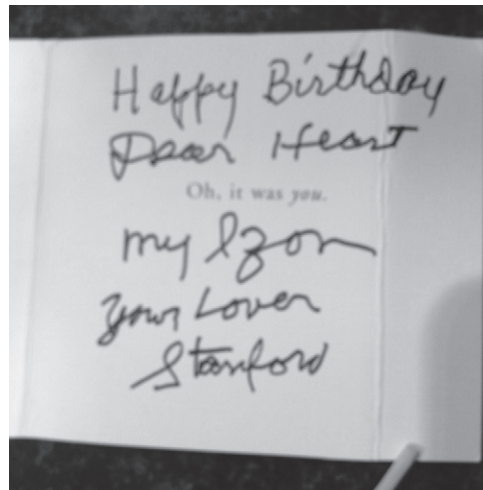 Happy Birthday
Dear Heart
Oh, it was you.
my Izon
Your Lover
Stanford